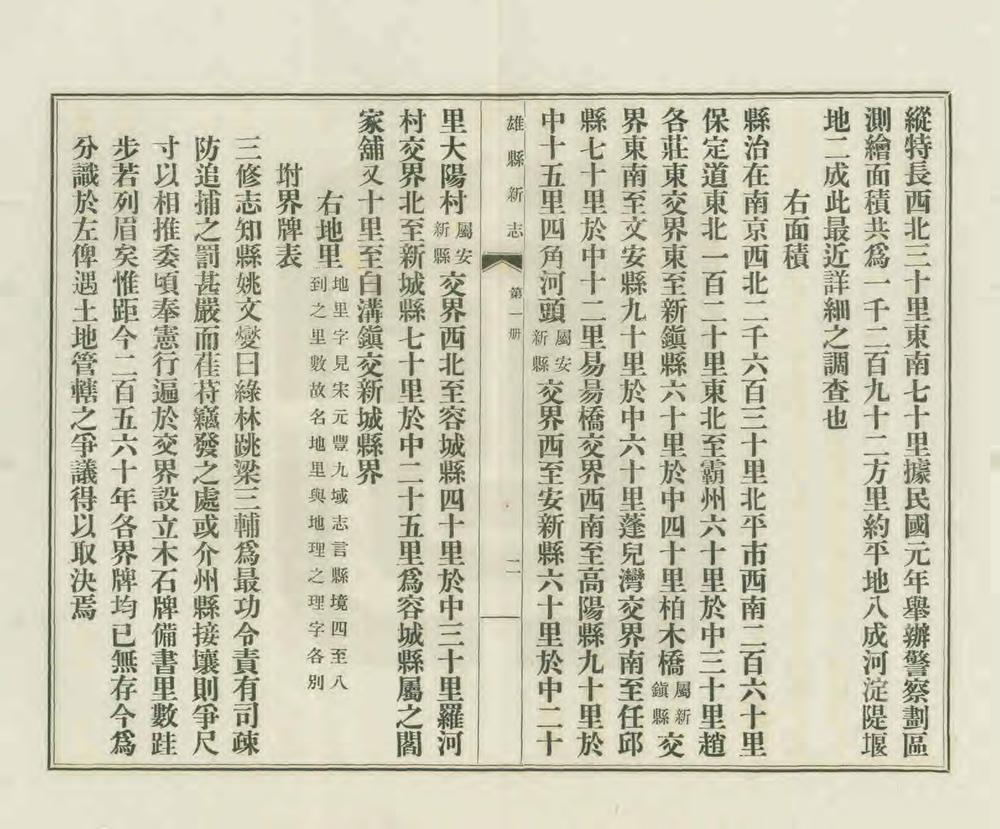 縱特長西北三十里東南七十里據民國元年舉辦警察劃區
測繪面積共爲一千二百九十二方里約平地八成河淀隄堰
地二成此最近詳細之調查也
右面積
縣治在南京西北二千六百三十里北平市西南二百六十里
保定道東北一百二十里東北至霸州六十里於中三十里趙
各莊東交界東至新鎮縣六十里於中四十里柏木橋屬新鎮縣交
界東南至文安縣九十里於中六十里蓬兒灣交界南至任邱
縣七十里於中十二里易易橋交界西南至高陽縣九十里於
中十五里四角河頭屬安新縣交界西至安新縣六十里於中二十
雄縣新志 第一册 二
里大陽村屬安新縣交界西北至容城縣四十里於中三十里羅河
村交界北至新城縣七十里於中二十五里爲容城縣屬之閻
家舖又十里至白溝鎮交新城縣界
右地里地里字見宋元豐九域志言縣境四至八到之里數故名地里與地理之理字各別
坿界牌表
三修志知縣姚文燮曰綠林跳梁三輔爲最功令責有司疎
防追捕之罰甚嚴而萑苻竊發之處或介州縣接壤則爭尺
寸以相推委頃奉憲行遍於交界設立木石牌備書里數跬
步若列眉矣惟距今二百五六十年各界牌均已無存今爲
分識於左俾遇土地管轄之爭議得以取決焉